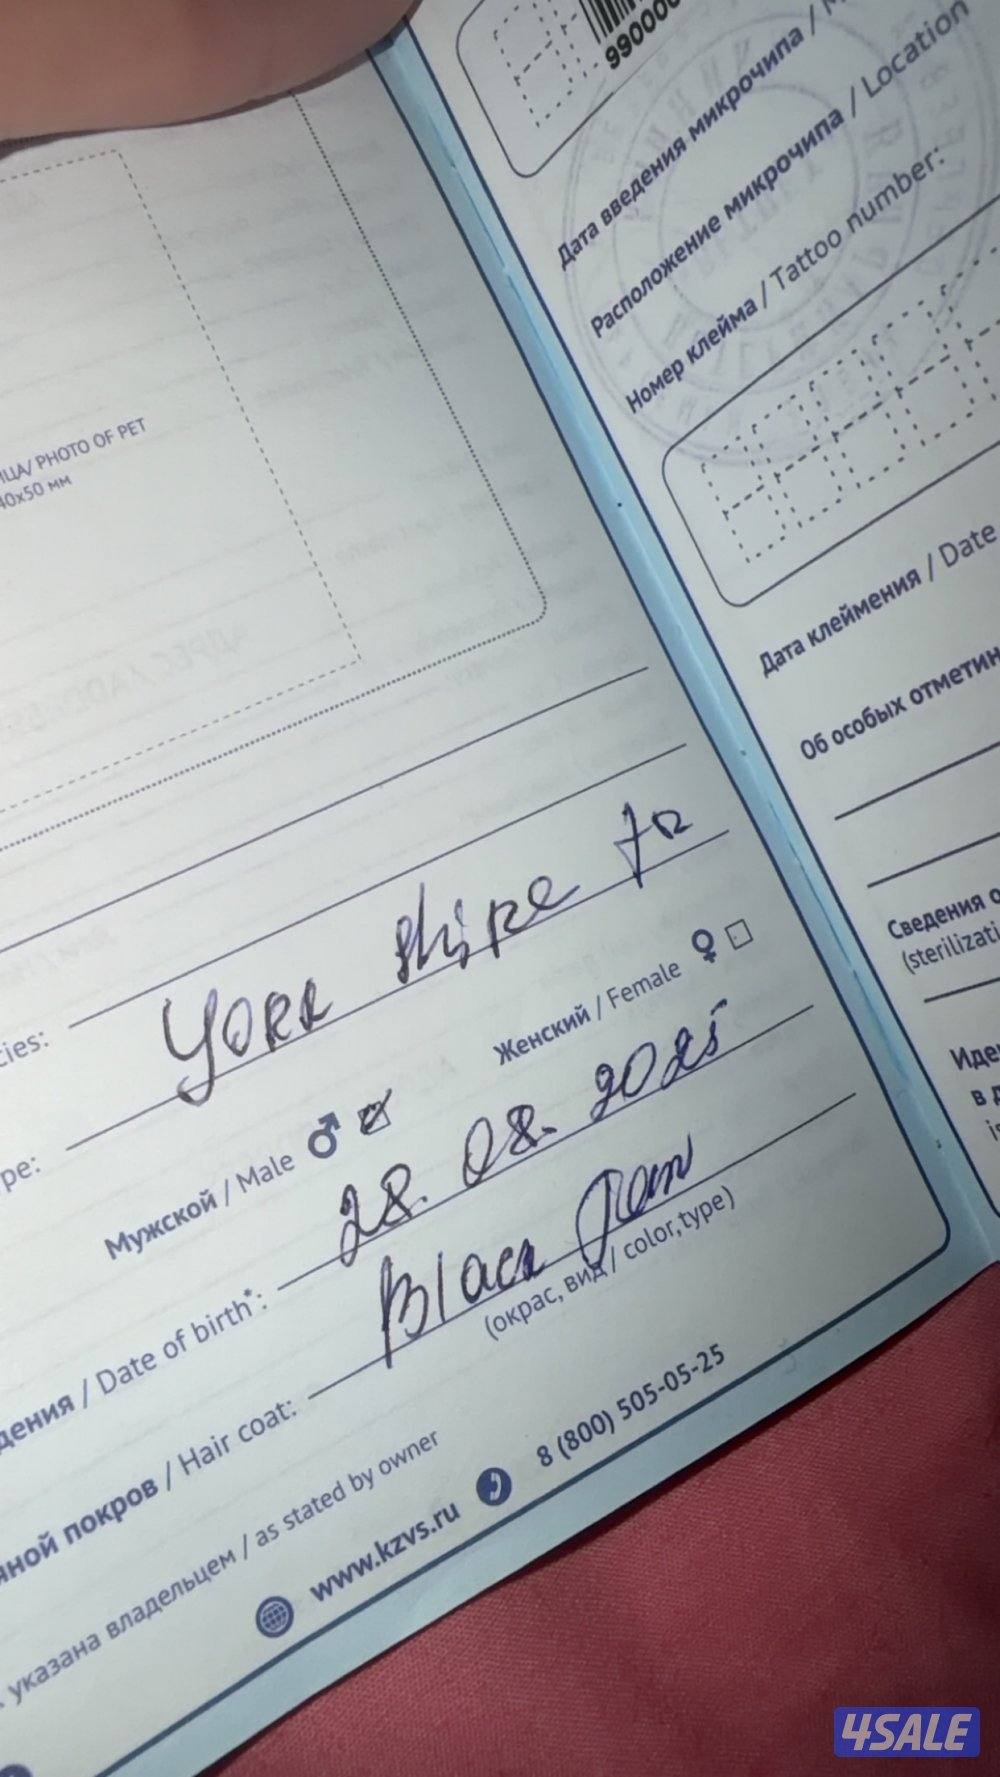 99000
Дата введения микрочипа /
Расположение микрочипа / Location
Номер клейма / Tattoo number:
Дата клеймения / Date
Об особых отметин
Сведения о
(sterilizati
Иде
в д
is
ИЦА/ PHOTO OF PET
40x50 мм
cies:
York shire tr
pe:
Мужской / Male ♂ Женский / Female ♀
28.08.2025
дения / Date of birth*:
Black Tan
яной покров / Hair coat:
(окрас, вид / color,type)
указана владельцем / as stated by owner
www.kzvs.ru 8 (800) 505-05-25
4SALE